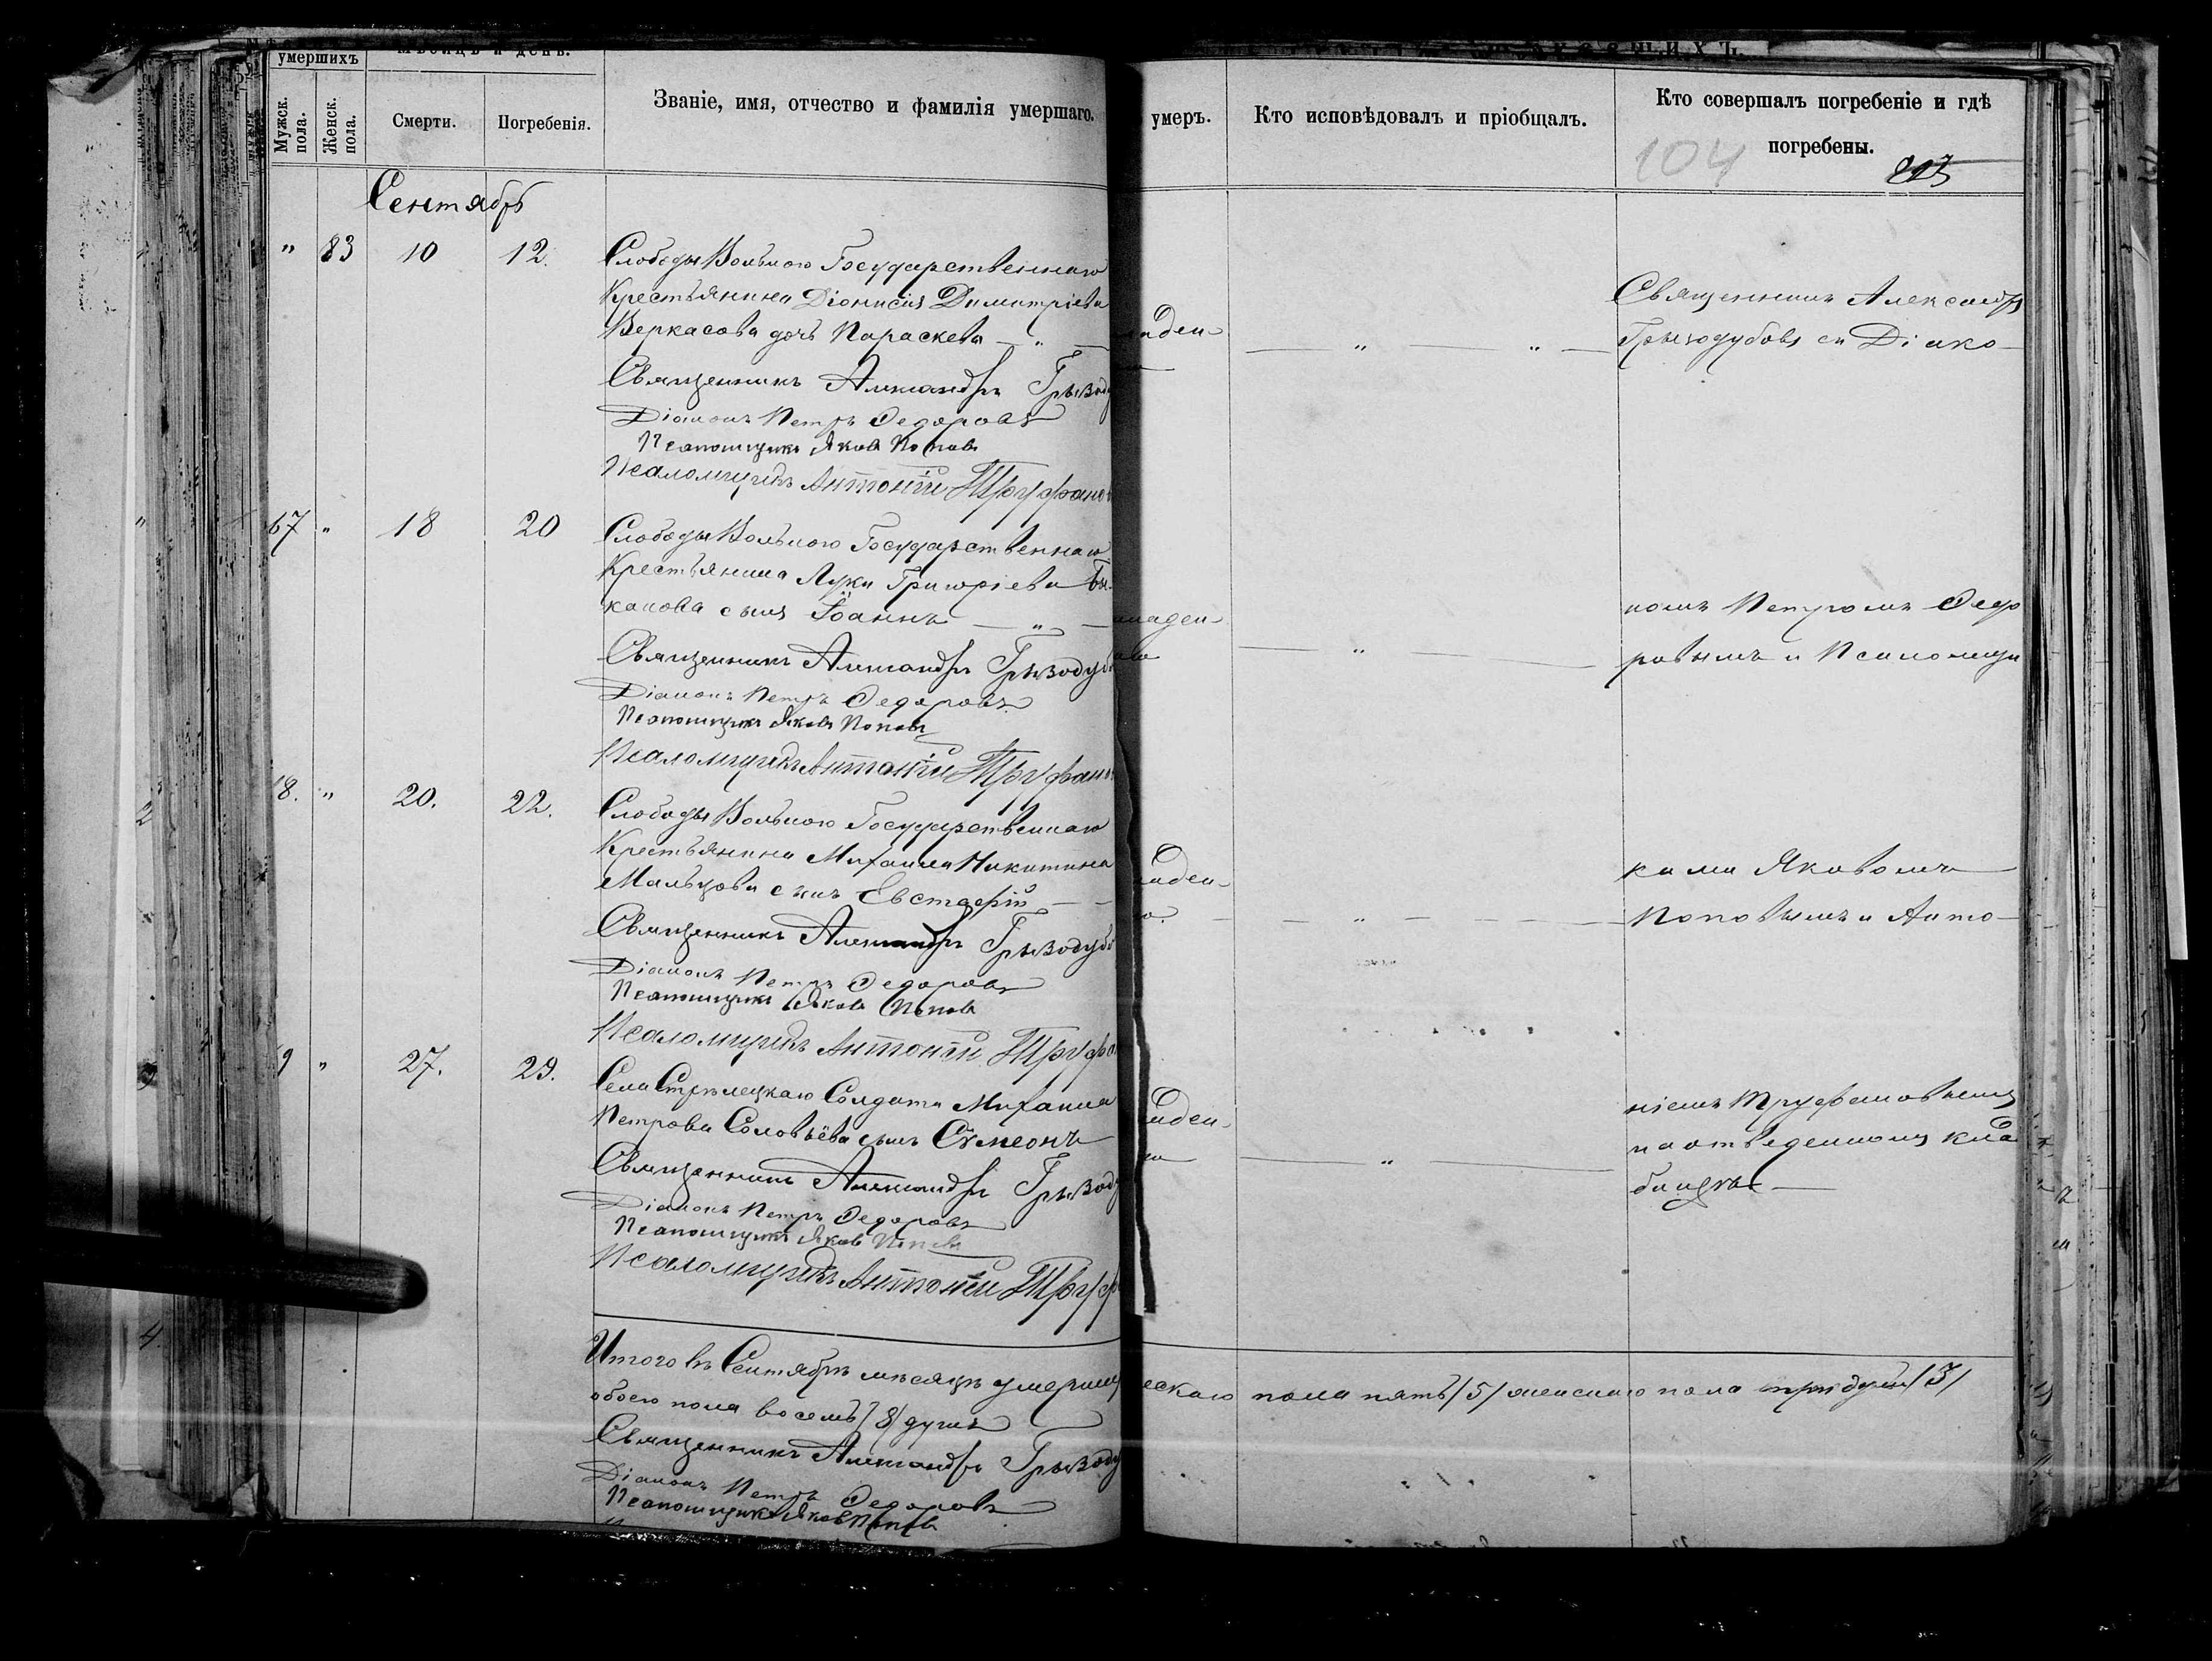 умершихъ
Мѣсяцъ и день.
Мужск. пола.
Женск. пола.
Смерти.
Погребенія.
Званіе, имя, отчество и фамилія умершаго.
Сентябрь
" 83 10 12.
Слободы Вольного Государственнаго
Крестьянина Діонисія Димитріева
Веркасова дочь Параскева — " —
Священникъ Александръ Грызоду
Діаконъ Петръ Федоровъ
Псаломщикъ Яковъ Поповъ
Псаломщикъ Антоній Труфанов
67 " 18 20
Слободы Вольного Государственнаго
Крестьянина Луки Григоріева Бы-
канова сынъ Іоаннъ — " —
Священникъ Александръ Грызодуб
Діаконъ Петръ Федоровъ
Псаломщикъ Яковъ Поповъ
Псаломщикъ Антоній Труфанов
8. " 20. 22.
Слободы Вольного Государственнаго
Крестьянина Михаила Никитина
Мальцова сынъ Евстафій — —
Священникъ Александръ Грызодуб
Діаконъ Петръ Федоровъ
Псаломщикъ Яковъ Поповъ
Псаломщикъ Антоній Труфа
9 " 27. 29.
Села Стрѣлецкаго Солдата Михаила
Петрова Соловьёва сынъ Сѵмеонъ
Священникъ Александръ Грызоду
Діаконъ Петръ Федоровъ
Псаломщикъ Яковъ Поповъ
Псаломщикъ Антоній Труф
Итого въ Сентябрѣ мѣсяцѣ умерши
обоего пола восемь /8/ душъ
Священникъ Александръ Грызоду
Діаконъ Петръ Федоровъ
Псаломщикъ Яковъ Поповъ
умеръ.
Кто исповѣдовалъ и пріобщалъ.
Кто совершалъ погребеніе и гдѣ
погребены.
104
аден-
— " — " —
Священникъ Александръ
Грызодубовъ съ Діако-
ладен-
— " —
номъ Петромъ Федо
ровымъ и Псаломщи
аден-
— " —
ками Яковомъ
Поповымъ и Анто-
аден-
— " —
ніемъ Труфановымъ
на отведенномъ кла
бищѣ —
ескаго пола пять /5/ женскаго пола три души /3/